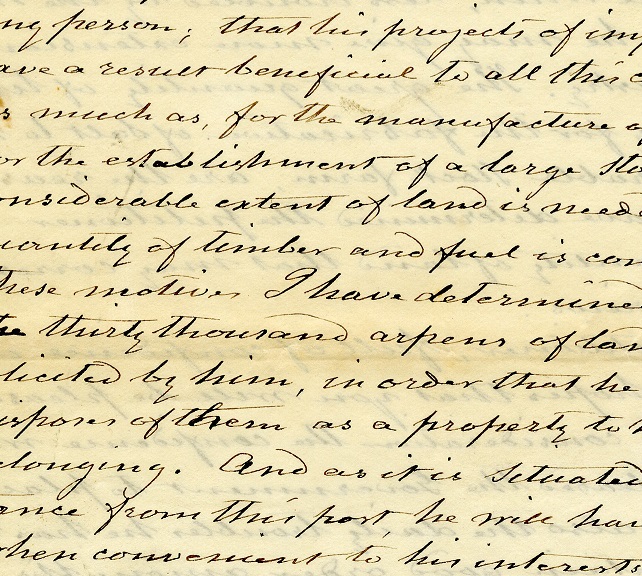 ng person; that his projects of imp
ave a result beneficial to all this c
s much as, for the manufacture of
or the establishment of a large Sto
onsiderable extent of land is neede
uantity of timber and fuel is con
these motives I have determined
the thirty thousand arpens of lan
licited by him, in order that he
ispose of them as a property to h
elonging. And as it is situated
ance from this post, he will hav
when convenient to his interests